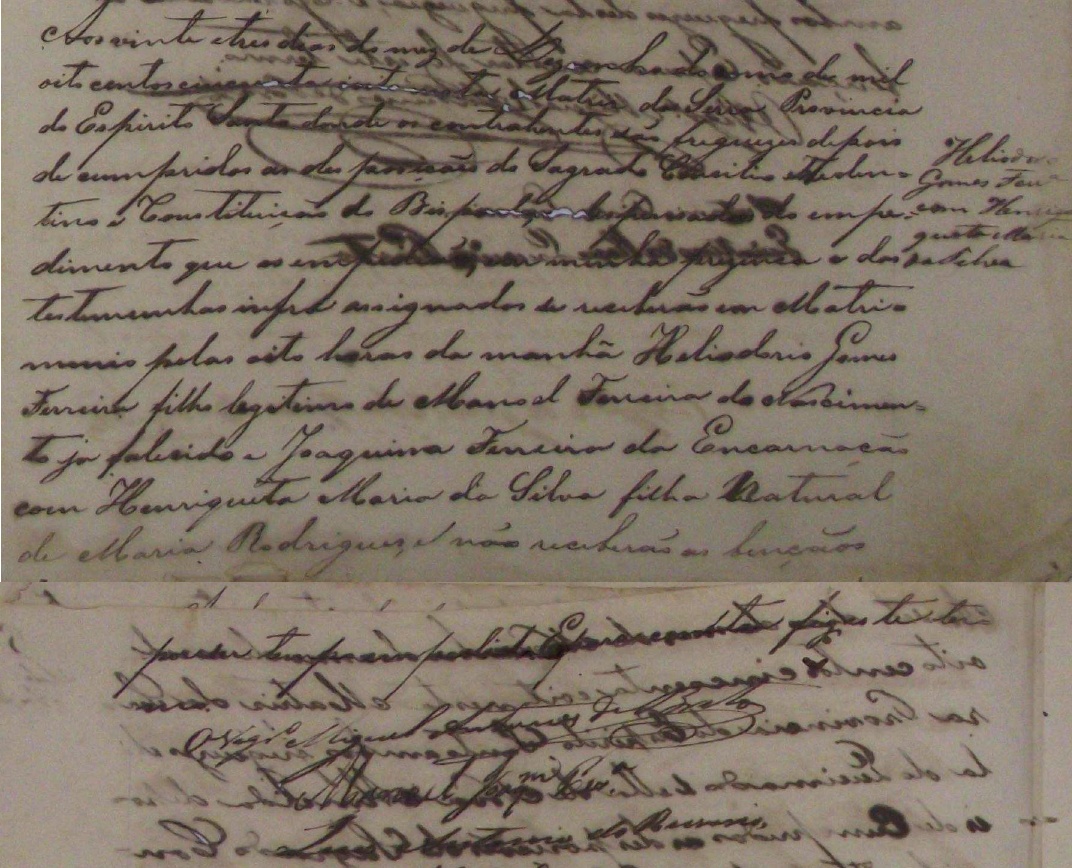 Aos vinte e tres dias do mez de Dezembro do anno de mil
oito centos cincoenta e oito nesta Matriz da Serra Provincia
do Espirito Santo donde os contrahentes são freguezes depois
de cumpridas as desposição do Sagrado Concilio Triden-
tino e Constituição do Bispado dispensados do empe-
dimento que os em minha prezença e das
testemunhas infra assignadas se receberão em Matri-
monio pelas oito horas da manhã Heliodorio Gomes
Ferreira filho legitimo de Manoel Ferreira do Nascimen-
to ja falecido e Joaquina Ferreira da Encarnação
com Henriqueta Maria da Silva filha Natural
de Maria Rodrigues, e não receberão as bençãos
Heliodo
Gomes Ferr
com Henri
queta Maria
da Silva
por ser tempo em prohibido E para constar fiz este
O Vigr.º Miguel Antunes de Brito
Manoel
Luis Antonio do Rozario